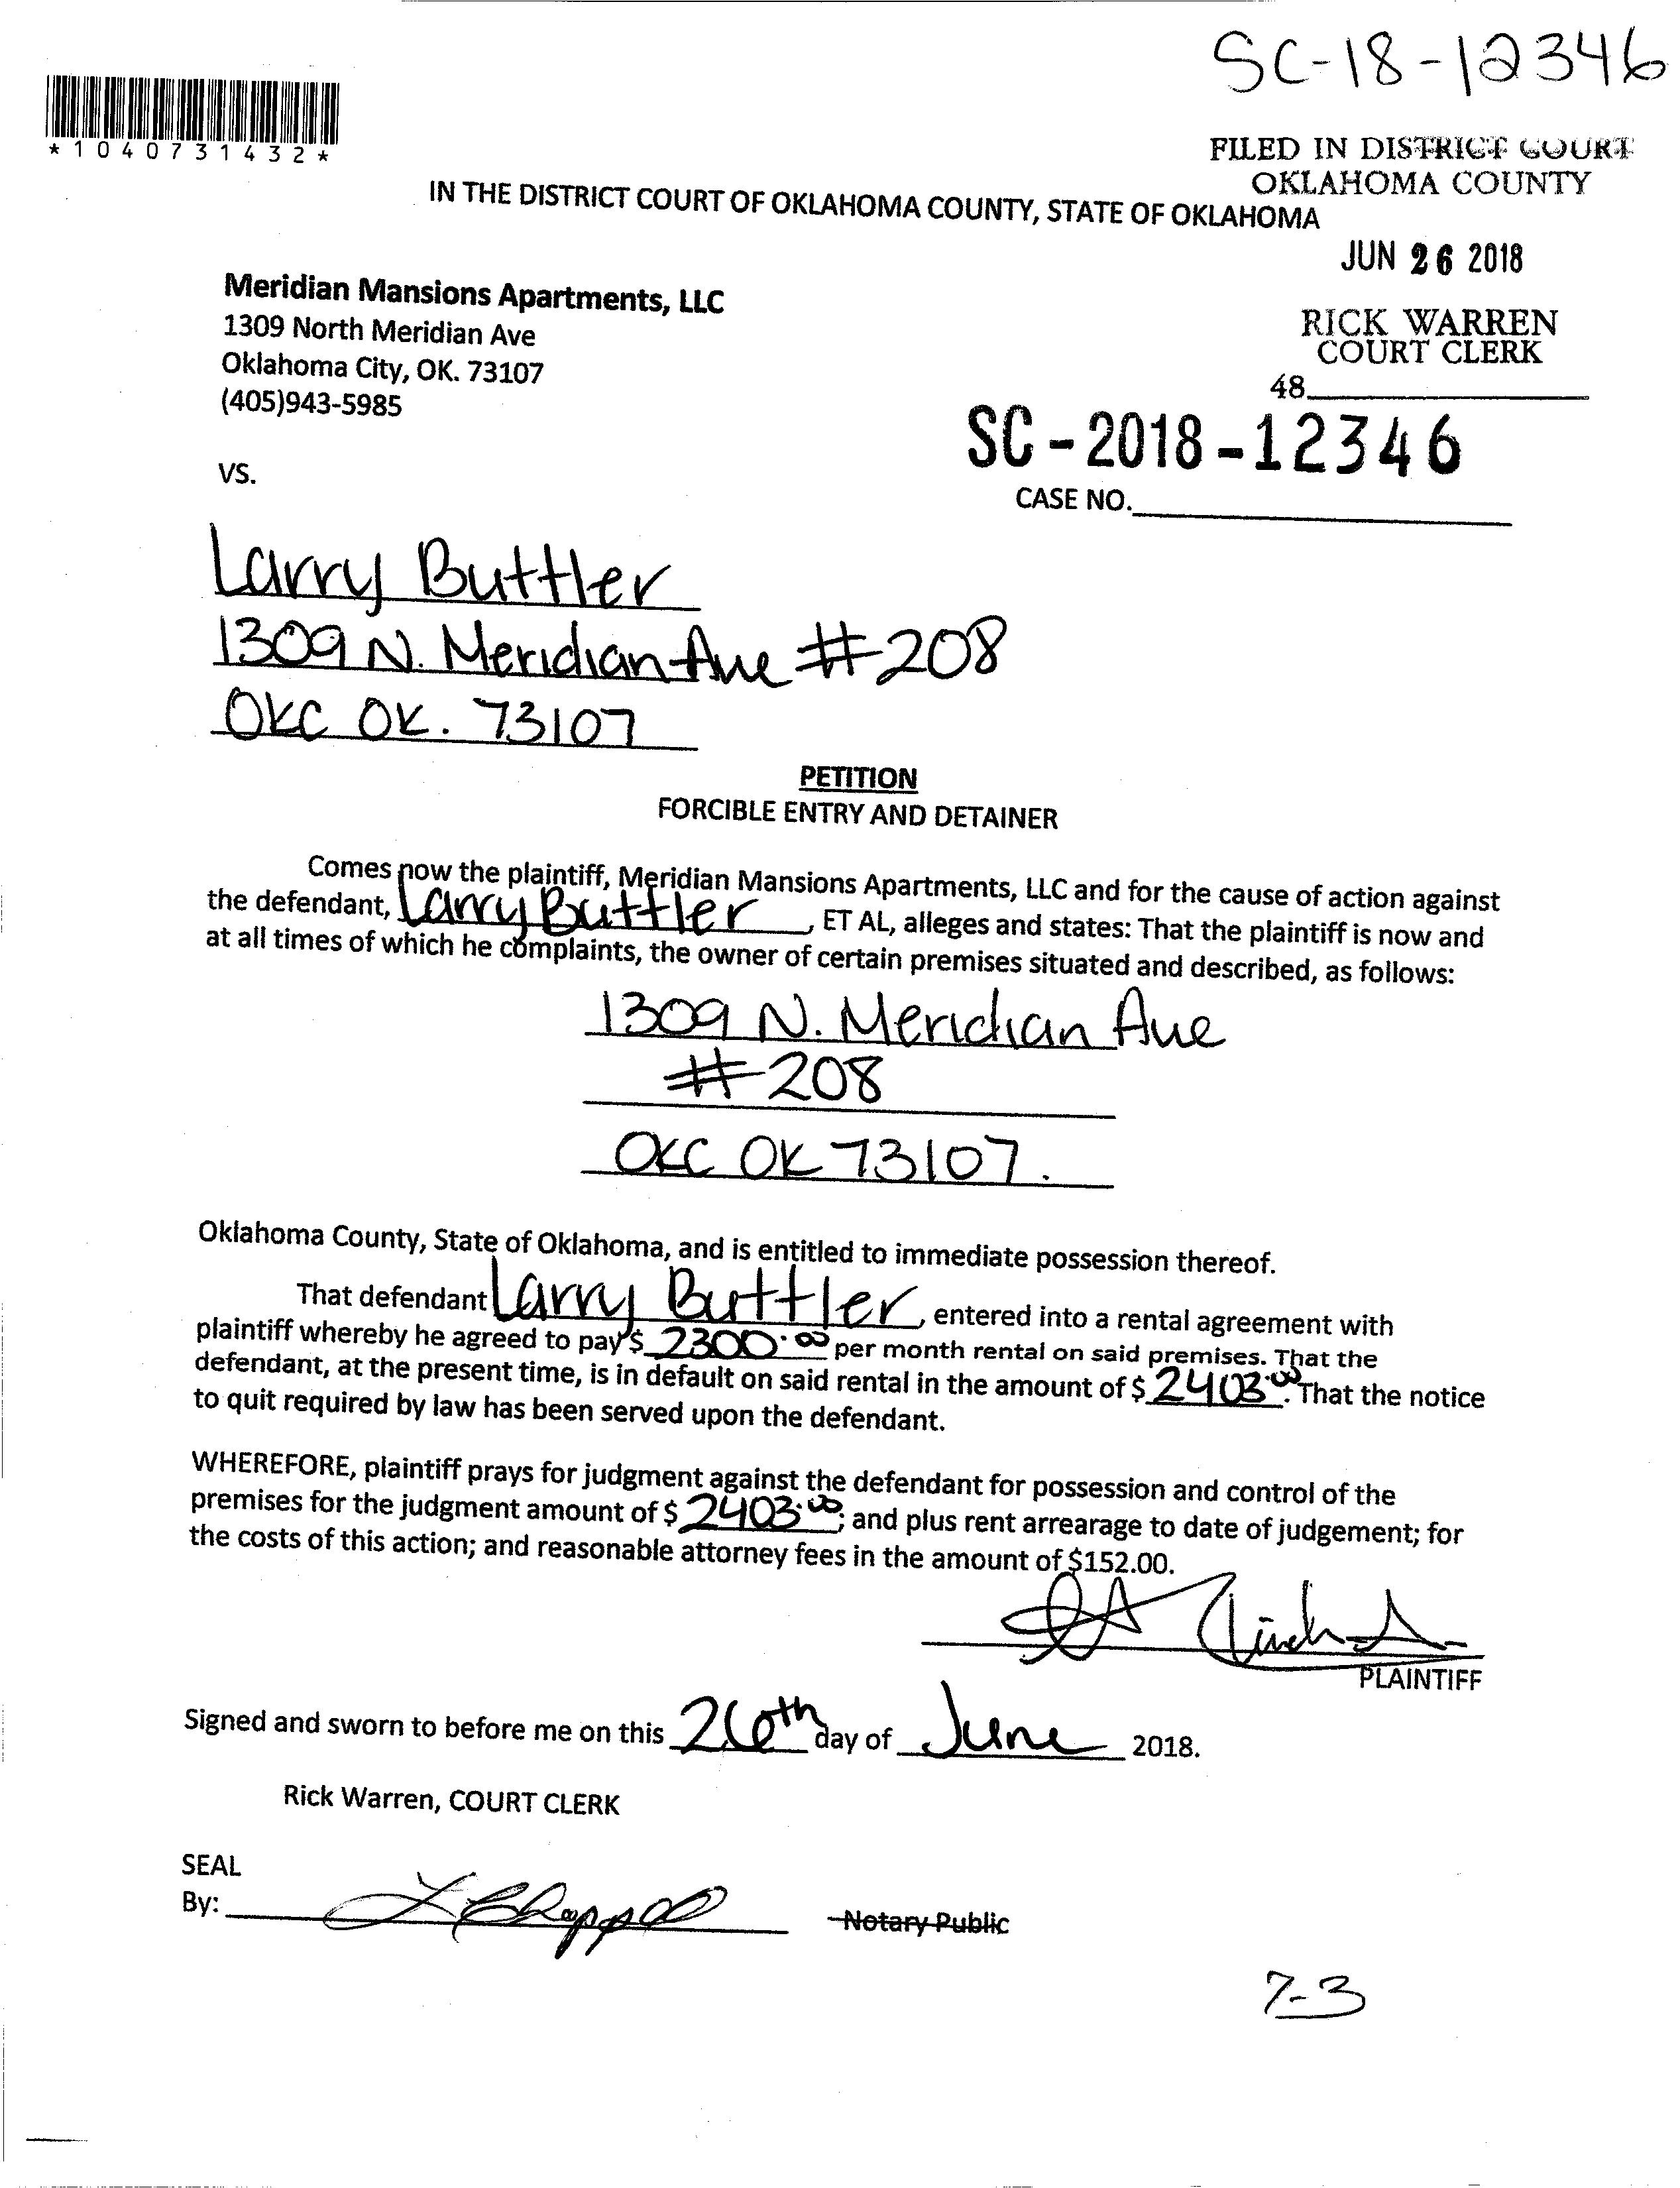 SC-18-12346
*1040731432*
FILED IN DISTRICT COURT
OKLAHOMA COUNTY
IN THE DISTRICT COURT OF OKLAHOMA COUNTY, STATE OF OKLAHOMA
JUN 26 2018
Meridian Mansions Apartments, LLC
1309 North Meridian Ave
Oklahoma City, OK. 73107
(405)943-5985
RICK WARREN
COURT CLERK
48
SC-2018-12346
VS.
CASE NO.
Larry Buttler
1309 N. Meridian Ave #208
OKC OK. 73107
PETITION
FORCIBLE ENTRY AND DETAINER
Comes now the plaintiff, Meridian Mansions Apartments, LLC and for the cause of action against
the defendant, Larry Buttler, ET AL, alleges and states: That the plaintiff is now and
at all times of which he complaints, the owner of certain premises situated and described, as follows:
1309 N. Meridian Ave
#208
OKC OK 73107.
Oklahoma County, State of Oklahoma, and is entitled to immediate possession thereof.
That defendant Larry Buttler, entered into a rental agreement with
plaintiff whereby he agreed to pay $ 2300.00 per month rental on said premises. That the
defendant, at the present time, is in default on said rental in the amount of $ 2403.00. That the notice
to quit required by law has been served upon the defendant.
WHEREFORE, plaintiff prays for judgment against the defendant for possession and control of the
premises for the judgment amount of $ 2403.00; and plus rent arrearage to date of judgement; for
the costs of this action; and reasonable attorney fees in the amount of $152.00.
PLAINTIFF
Signed and sworn to before me on this 26th day of June 2018.
Rick Warren, COURT CLERK
SEAL
By:
Notary Public
7-3